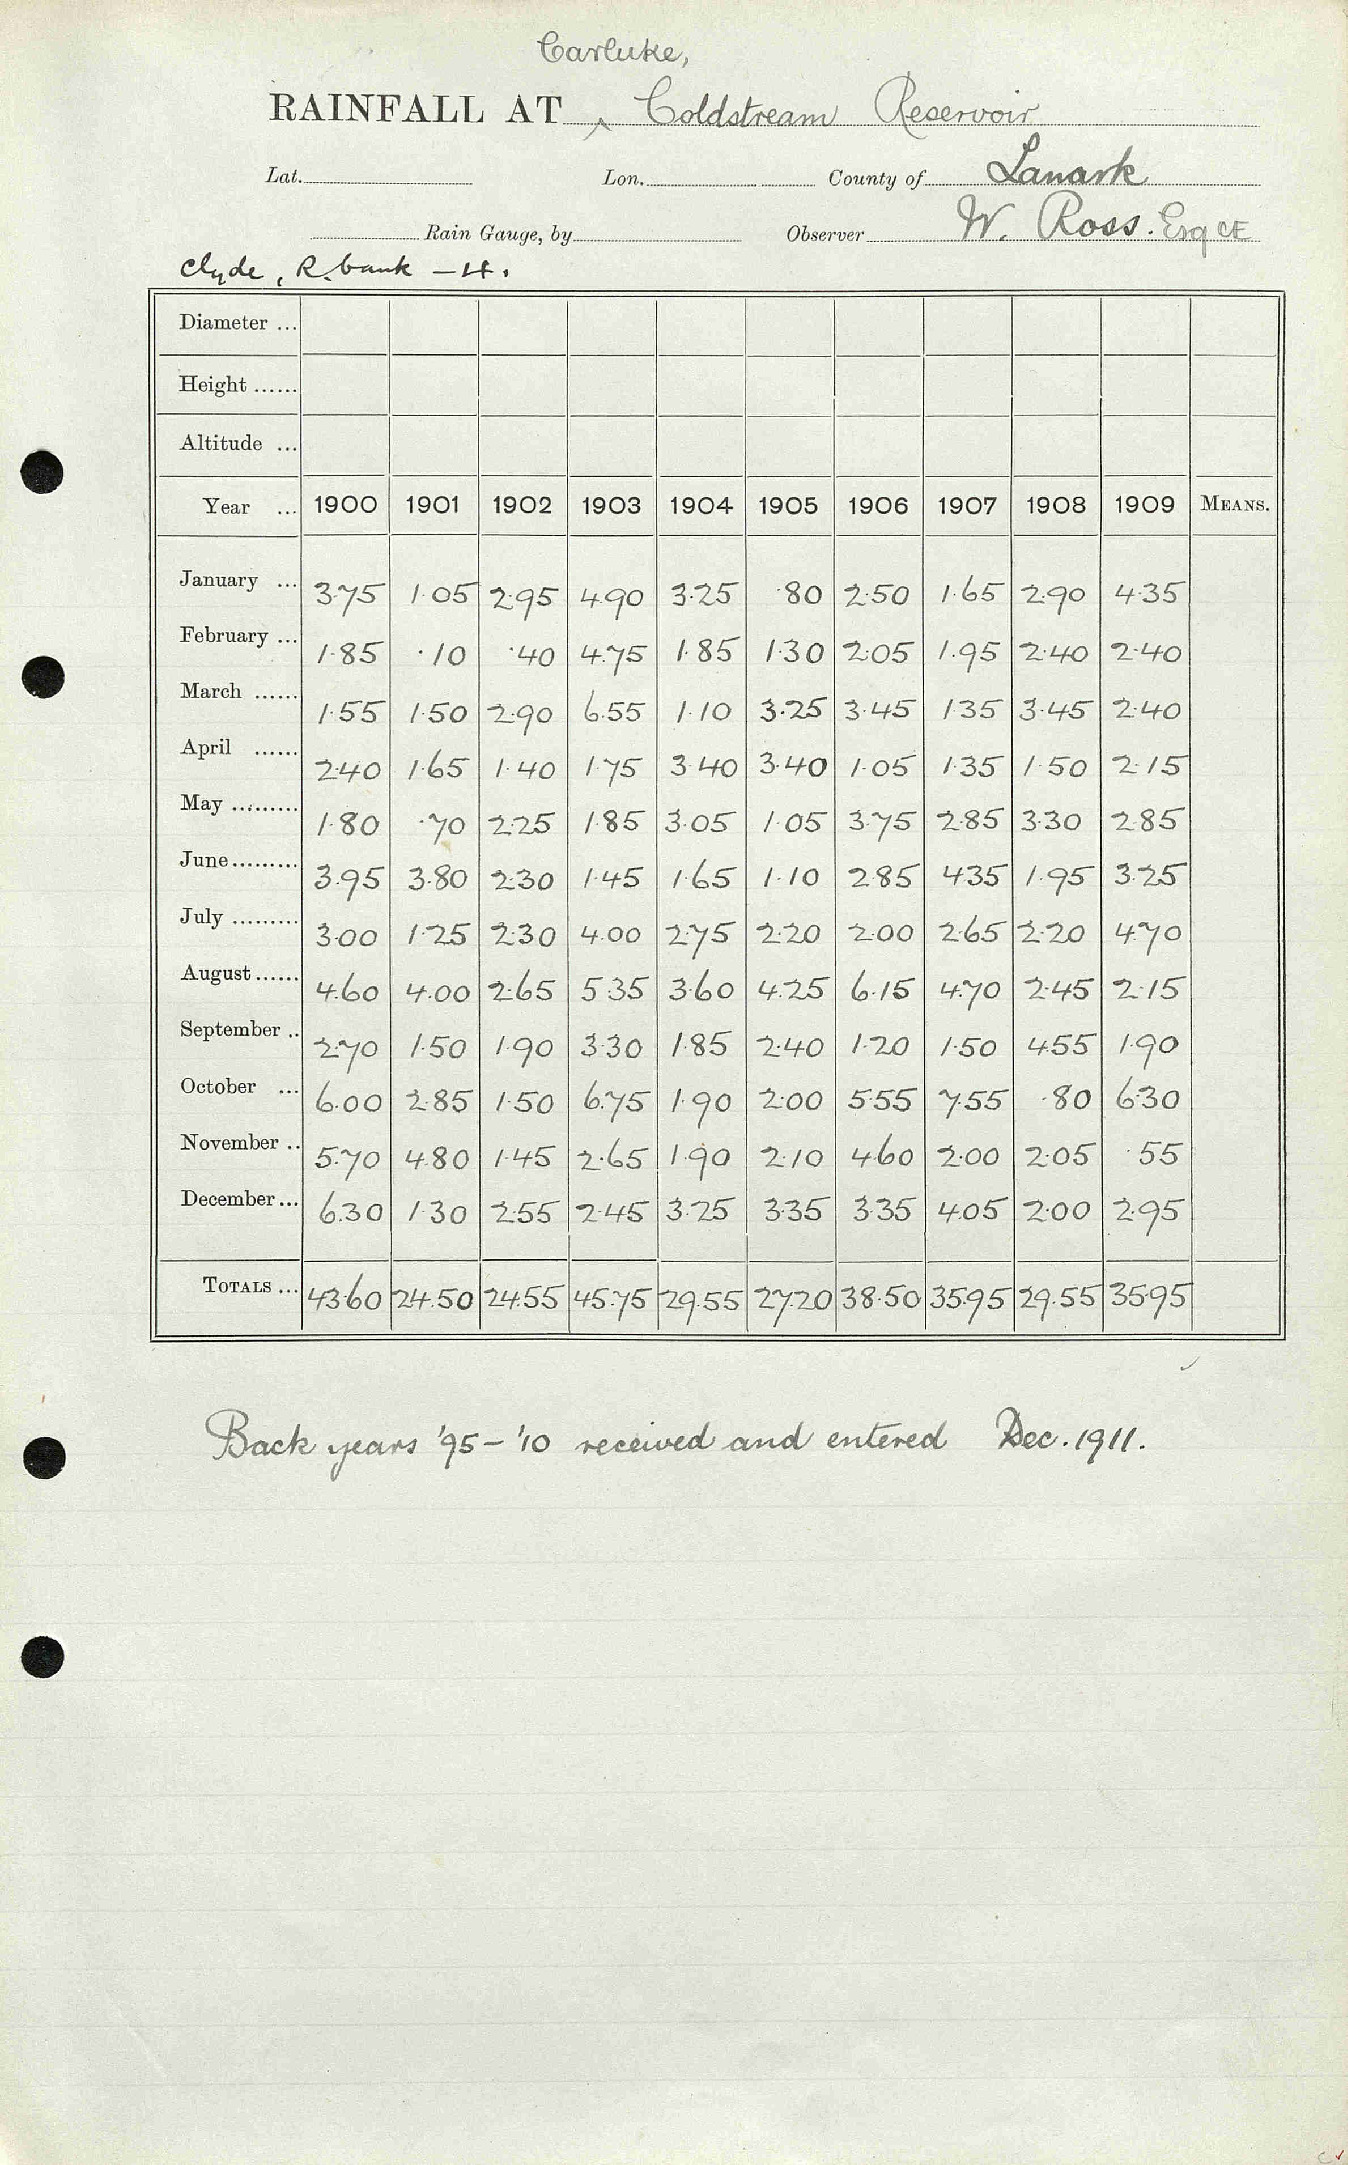 Carluke,
RAINFALL AT ^ Coldstream Reservoir
Lat. Lon. County of Lanark
Rain Gauge, by Observer W. Ross. Esq CE
Clyde, R. bank – 4.
Diameter ...
Height ......
Altitude ...
Year ... 1900 1901 1902 1903 1904 1905 1906 1907 1908 1909 MEANS.
January ... 3.75 1.05 2.95 4.90 3.25 .80 2.50 1.65 2.90 4.35
February ... 1.85 .10 .40 4.75 1.85 1.30 2.05 1.95 2.40 2.40
March ...... 1.55 1.50 2.90 6.55 1.10 3.25 3.45 1.35 3.45 2.40
April ...... 2.40 1.65 1.40 1.75 3.40 3.40 1.05 1.35 1.50 2.15
May ......... 1.80 .70 2.25 1.85 3.05 1.05 3.75 2.85 3.30 2.85
June ......... 3.95 3.80 2.30 1.45 1.65 1.10 2.85 4.35 1.95 3.25
July ......... 3.00 1.25 2.30 4.00 2.75 2.20 2.00 2.65 2.20 4.70
August ...... 4.60 4.00 2.65 5.35 3.60 4.25 6.15 4.70 2.45 2.15
September .. 2.70 1.50 1.90 3.30 1.85 2.40 1.20 1.50 4.55 1.90
October ... 6.00 2.85 1.50 6.75 1.90 2.00 5.55 7.55 .80 6.30
November .. 5.70 4.80 1.45 2.65 1.90 2.10 4.60 2.00 2.05 .55
December ... 6.30 1.30 2.55 2.45 3.25 3.35 3.35 4.05 2.00 2.95
TOTALS ... 43.60 24.50 24.55 45.75 29.55 27.20 38.50 35.95 29.55 35.95
Back years '95 – '10 received and entered Dec. 1911.